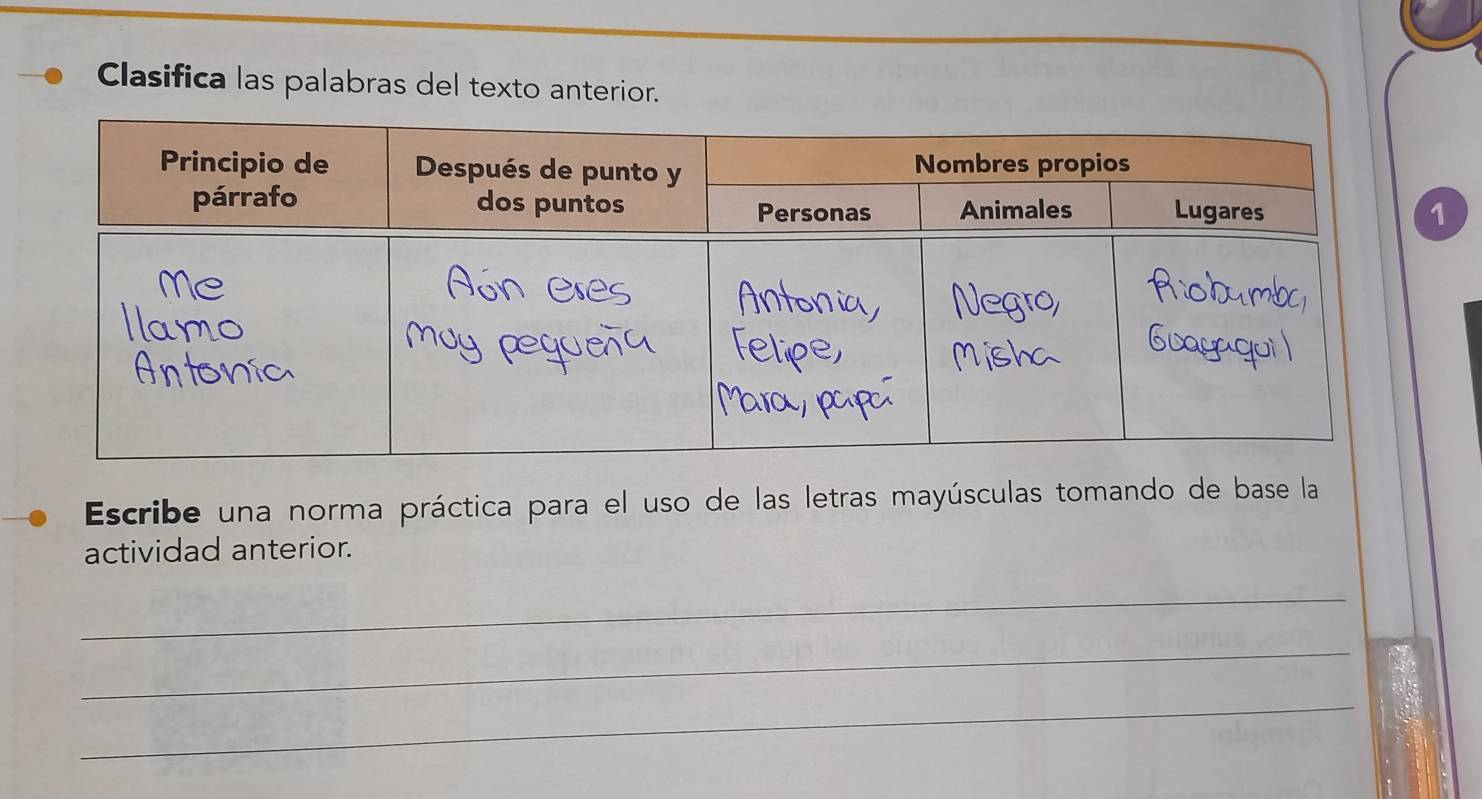 Clasifica las palabras del texto anterior.
Principio de párrafo
Después de punto y dos puntos
Nombres propios
Personas
Animales
Lugares
1
Me
llamo
Antonia
Aón eres
moy pequeña
Antonia,
Felipe,
Mara, papá
Negro,
Misha
Riobamba,
Goayaquil
Escribe una norma práctica para el uso de las letras mayúsculas tomando de base la
actividad anterior.